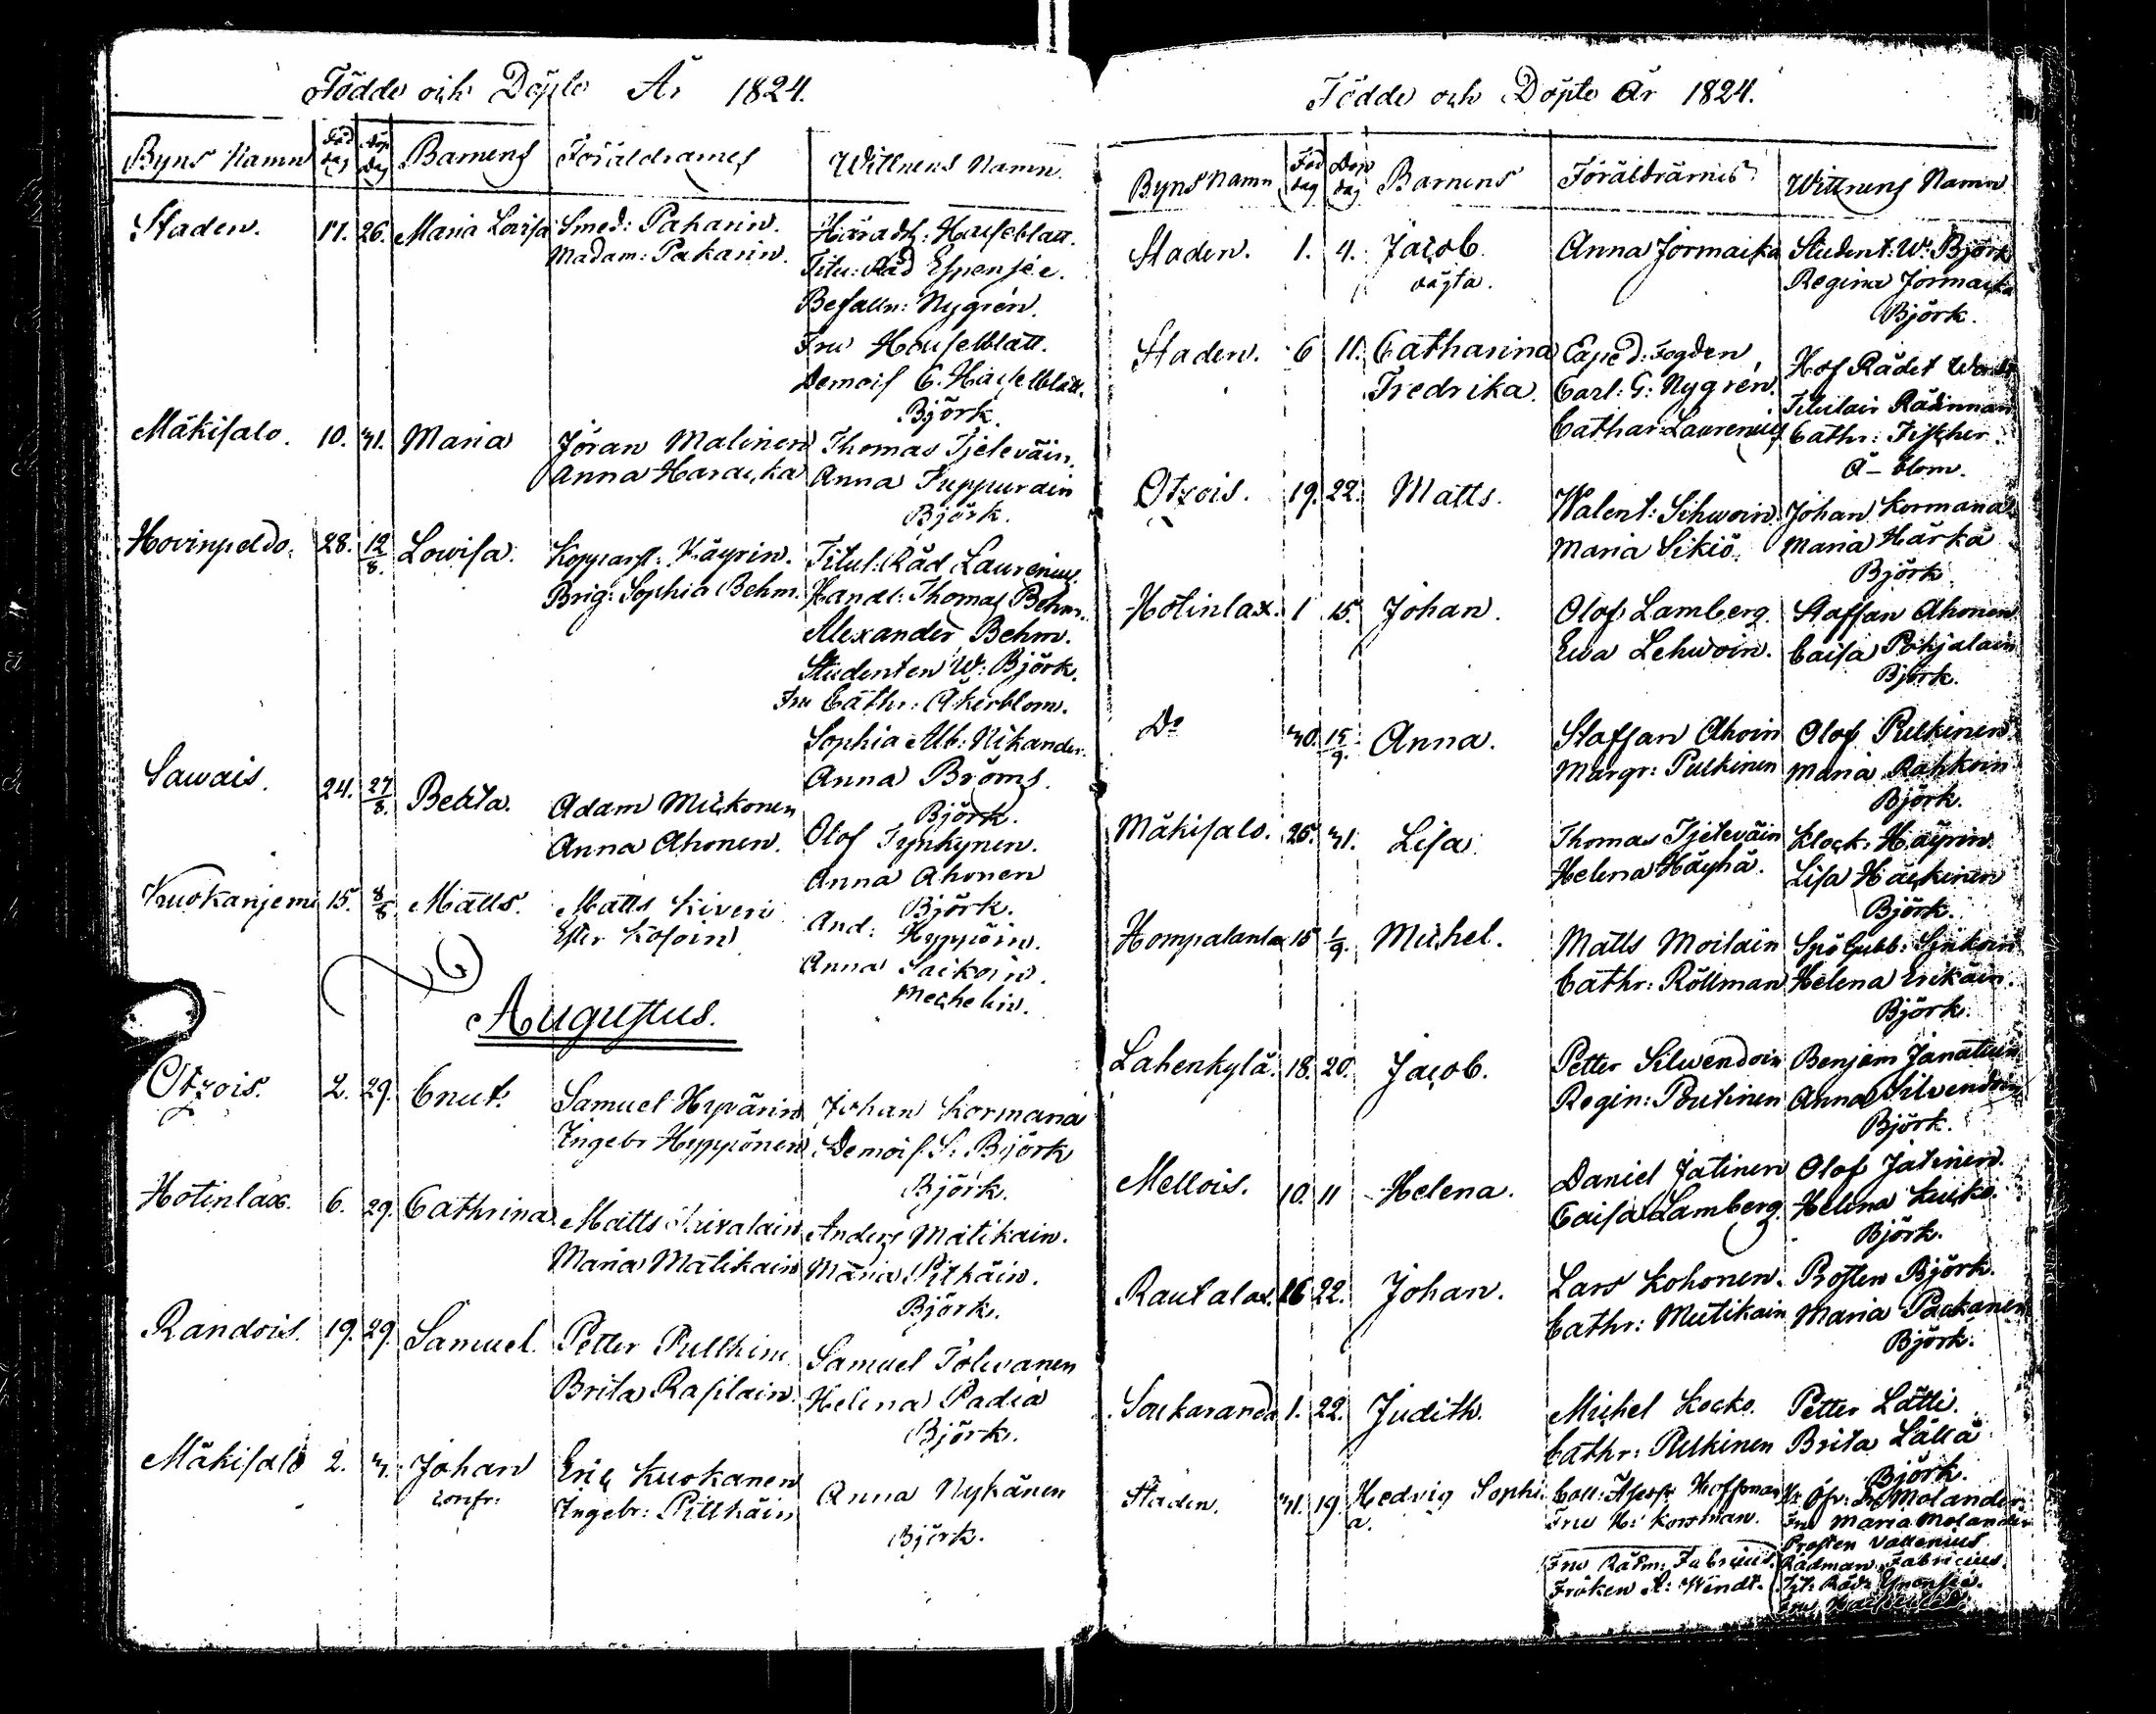 Födde och Döpte År 1824.
Byns Namn Föd dag Döp dag Barnens Föräldrarnes Wittnens Namn.
Staden. 17. 26. Maria Lovisa Smed: Pakarin. Häradsh: Hauseblatt.
Madam: Pakarin. Titu: Råd Espensée.
Befalln: Nygrén.
Fru Hauselblatt.
Demois C. Hauselblatt.
Björk.
Mäkisalo. 10. 31. Maria Jöran Malinen Thomas Tjeleväin.
Anna Haraicka Anna Tuppurain
Björk.
Hovinpeldo. 28. 12/8. Lowisa. Kopparsl: Käyrin. Titul: Råd Laurenius.
Brig: Sophia Behm. Handl: Thomas Behm.
Alexander Behm.
Studenten W: Björk.
Fru Cathr: Åkerblom.
Sophia Alb: Nikander.
Anna Bröms.
Björk.
Sawais. 24. 27/8. Beata. Adam Mickonen Olof Tynkynen.
Anna Ahonen. Anna Ahonen
Björk.
Kuokanjemi 15. 8/8. Matts. Matts Kiveri And: Hyppöin.
Ester Kosoin Anna Saikoin.
Mechelin.
Augustus.
Otzois. 2. 29. Cnut. Samuel Hyvärin Johan Kormana
Ingebr Hyppönen Demois S. Björk
Björk.
Hotinlax. 6. 29. Cathrina Matts Hivalain Anders Matikain.
Maria Matikain Maria Pitkäin.
Björk.
Randois. 19. 29. Samuel. Petter Pulkin Samuel Tolwanen
Brita Rasilain. Helena Padia
Björk.
Mäkisalo 2. 3. Johan Eric Kuokanen Anna Nykänen
confr: Ingebr: Pittkäin Björk.
Födde och Döpte År 1824.
Byns Namn Föd dag Döp dag Barnens Föräldrarnes Wittnens Namn
Staden. 1. 4. Jacob Anna Jormaika Student: W: Björk
oägta. Regina Jormaika
Björk.
Staden. 6 11. Catharina Exped: Fogden Hof Rådet
Fredrika. Carl: G: Nygrén. Titulair Rådinnan
Cathar: Laurenius Cathr: Fischer.
Å-blom.
Otzois. 19. 22. Matts. Walent: Sihwoin Johan Kormana
Maria Sikiö. Maria Härkä
Björk
Hotinlax. 1 15. Johan. Olof Lamberg. Staffan Ahonen
Ewa Lehwoin. Caisa Pohjalain
Björk.
Do 30. 15/9. Anna. Staffan Ahoin Olof Pulkinen
Margr: Pulkinen Maria Rahkoin
Björk.
Mäkisalo. 25. 31. Lisa. Thomas Tjeleväin Klock: Häyrin
Helena Häyhä. Lisa Häckinen
Björk.
Hompalanlax 15 1/9. Michel. Matts Moilain Spögubb: Synkoin
Cathr: Röllman Helena Erikäin.
Björk.
Lahenkylä. 18. 20. Jacob. Petter Silwendoin Benjam Janatuin
Regin: Poutinen Anna Silvendoin
Björk.
Mellois. 10. 11 Helena. Daniel Jatinen Olof Jatinen.
Caisa Lamberg. Helena Kucko.
Björk.
Rautalax. 16 22. Johan. Lars Kohonen. Prosten Björk.
Cathr: Mutikain Maria Packanen
Björk.
Soukaranda 1. 22. Judith. Michel Kocko. Petter Lätti.
Cathr: Pulkinen Brita Lällä
Björk.
Staden. 31. 19. Hedvig Sophi Coll: Assess: Hoffman Hr Öfv: Molander
a. Fru H: Korsman. Fru Maria Molander
Prosten Vallenius
Fru Rådm: Fabricius. Rådman Fabricius.
Fröken A: Windt. Tit: Råd: Espensée.
Fru